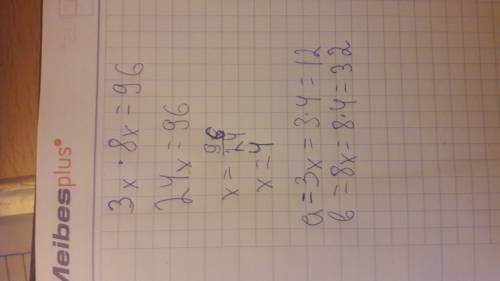 Meibesplus
3x · 8x = 96
24x = 96
x = 96/24
x = 4
a = 3x = 3·4 = 12
b = 8x = 8·4 = 32